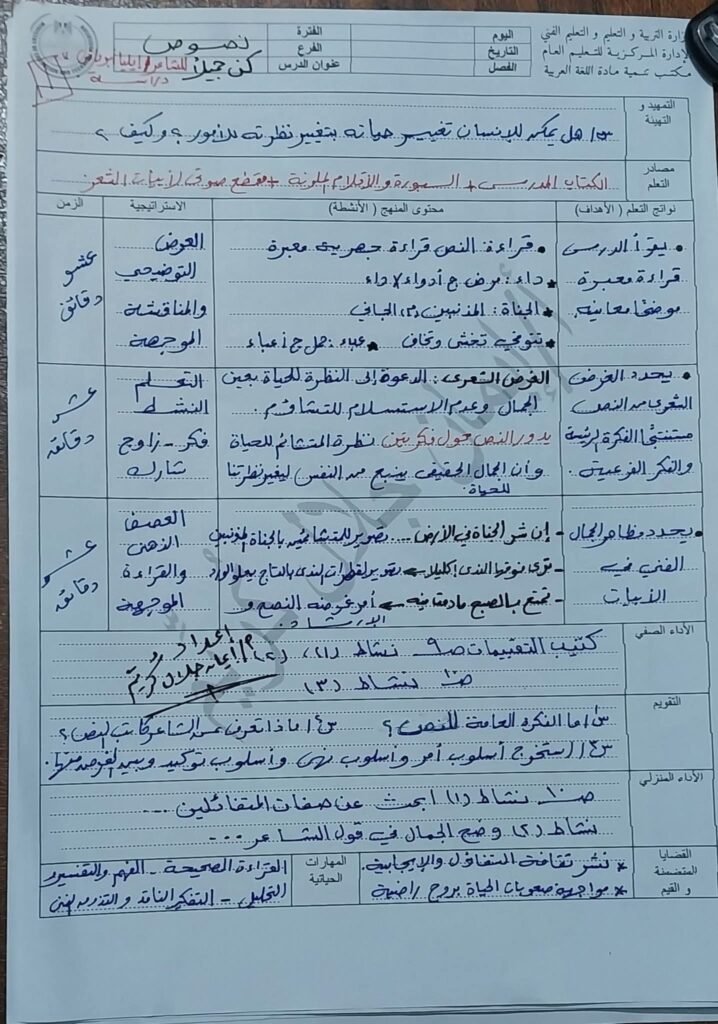 وزارة التربية و التعليم و التعليم الفني
الإدارة المركزية للتعليم العام
مكتب تنمية مادة اللغة العربية
اليوم
التاريخ
الفصل
الفترة
الفرع
عنوان الدرس
نصوص
كن جميلا
للشاعر/ إيليا أبو ماضي
دراسة
التمهيد و التهيئة
س١/ هل يمكن للإنسان تغيير حياته بتغيير نظرته للأمور؟ وكيف؟
مصادر التعلم
الكتاب المدرسي + السبورة والأقلام الملونة + مقطع صوتي لأبيات الشعر
نواتج التعلم (الأهداف)
محتوى المنهج (الأنشطة)
الاستراتيجية
الزمن
• يقرأ الدرس
قراءة معبرة
موضحًا معانيه.
• قراءة: النص قراءة جهرية معبرة
* داء: مرض ج أدواء لا دواء
* الجناة: المذنبين م/ الجاني
* تتوقى تخشى وتخاف * عبء: حمل ج أعباء
العرض
التوضيحي
والمناقشة
الموجهة
عشر
دقائق
• يحدد الغرض
الشعري من النص
مستنتجًا الفكرة الرئيسة
والفكر الفرعية.
الغرض الشعري: الدعوة إلى النظرة للحياة بعين
الجمال وعدم الاستسلام للتشاؤم.
يدور النص حول فكرتين نظرة المتشائم للحياة
وأن الجمال الحقيقي ينبع من النفس ليغير نظرتنا
للحياة.
التعلم
النشط
فكر - زاوج
شارك
عشر
دقائق
• يحدد مظاهر الجمال
الفني في
الأبيات
- إن شر الجناة في الأرض... تصوير للمتشائمين بالجناة المذنبين
- ترى فوقها الندى إكليلا ← تصوير لقطرات الندى بالتاج يعلو الورد
- تمتع بالصبح مادمت فيه ← أمر غرضه النصح و
الإرشاد.
العصف
الذهني
والقراءة
الموجهة
عشر
دقائق
الأداء الصفي
كتيب التقييمات ص٩ نشاط (١)، (٢)
ص١٠ نشاط (٣)
إعداد
م/ إيمان جلال كريم
التقويم
س١/ ما الفكرة العامة للنص؟ س٢/ ماذا تعرف عن الشاعر كاتب النص؟
س٣/ استخرج أسلوب أمر وأسلوب نهي وأسلوب توكيد وبين الغرض منها.
الأداء المنزلي
ص١٠ نشاط (١) ابحث عن صفات المتفائلين ...
نشاط (٢) وضح الجمال في قول الشاعر ...
القضايا المتضمنة و القيم
* نشر ثقافة التفاؤل والإيجابية.
* مواجهة صعوبات الحياة بروح راضية
المهارات الحياتية
القراءة الصحيحة - الفهم والتفسير
التحليل - التفكير الناقد و التذوق الفني